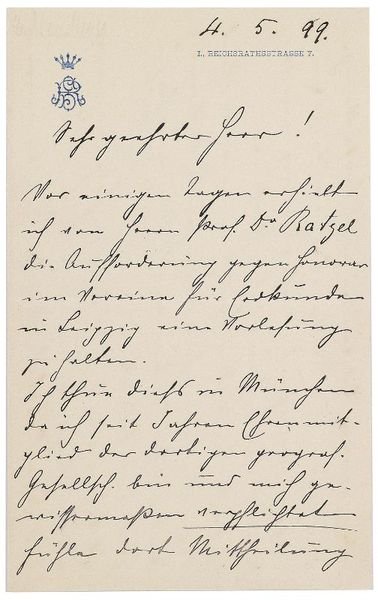 4. 5. 99.
I., REICHSRATHSSTRASSE 7.
Sehr geehrter Herr!
Vor einigen Tagen erhielt
ich von Herrn Prof. Dr Ratzel
die Aufforderung gegen Honorar
im Vereine für Erdkunde
in Leipzig eine Vorlesung
zu halten.
Ich thue dieß in München
da ich seit Jahren Ehrenmit-
glied der dortigen geograf.
Gesellsch. bin und mich ge-
wissermaßen verpflichtet
fühle dort Mittheilung